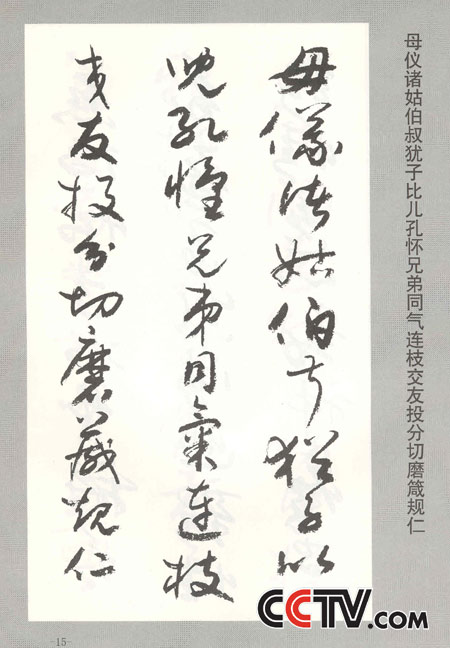 母仪诸姑伯叔犹子比儿孔怀兄弟同气连枝交友投分切磨箴规仁
母儀諸姑伯叔猶子比
兒孔懷兄弟同氣連枝
交友投分切磨箴規仁
-15-
CCTV.com